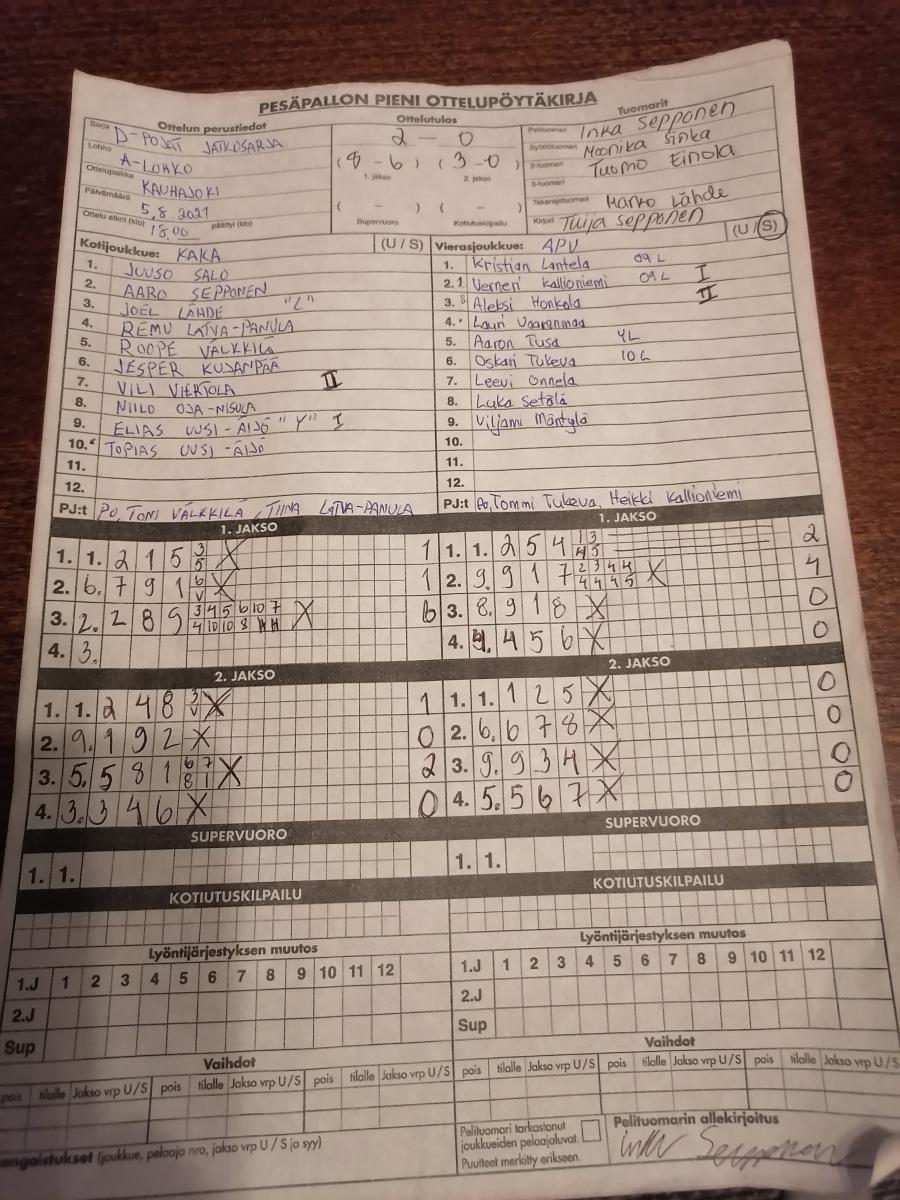 PESÄPALLON PIENI OTTELUPÖYTÄKIRJA
Ottelun perustiedot
Sarja D-POJAT JATKOSARJA
Lohko A-LOHKO
Ottelupaikka KAUHAJOKI
Päivämäärä 5,8.2021
Ottelu alkoi (klo) 18.00 päättyi (klo)
Ottelutulos
2 - 0
(8 - 6) (3 - 0)
1. jakso 2. jakso
( - ) ( - )
Supervuoro Kotiutuskilpailu
Tuomarit
Pelituomari Inka Sepponen
Syöttötuomari Moonika Sinka
2-tuomari Tuomo Einola
3-tuomari
Takarajatuomari Marko Lähde
Kirjuri Tuija Sepponen
Kotijoukkue: KAKA (U / S)
1. JUUSO SALO
2. AARO SEPPONEN
3. JOEL LÄHDE "L"
4. REMU LATVA-PANULA
5. ROOPE VÄLKKILÄ
6. JESPER KUJANPÄÄ
7. VILI VIERTOLA II
8. NIILO OJA-NISULA
9. ELIAS UUSI-ÄIJÖ "Y" I
10. TOPIAS UUSI-ÄIJÖ
11.
12.
PJ:t Po, TONI VÄLKKILÄ, TIINA LATVA-PANULA
Vierasjoukkue: APV (U / S)
1. Kristian Lantela 09 L
2. Verneri Kallioniemi 09 L I
3. Aleksi Honkola II
4. Lauri Vaaranmaa
5. Aaron Tusa YL
6. Oskari Tukeva 10 L
7. Leevi Onnela
8. Luka Setälä
9. Viljami Mäntylä
10.
11.
12.
PJ:t Po, Tommi Tukeva, Heikki Kallioniemi
1. JAKSO
1. 1. 2 1 5 3 5 X 1
2. 6. 7 9 1 6 V X 1
3. 2. 2 8 9 3 4 5 6 10 7 4 10 10 8 X 6
4. 3.
1. JAKSO
1. 1. 2 5 4 1 3 4 5 2
2. 9. 9 1 7 2 3 4 4 4 4 4 5 X 4
3. 8. 9 1 8 X 0
4. 4 5 6 X 0
2. JAKSO
1. 1. 2 4 8 3 V X 1
2. 9. 1 9 2 X 0
3. 5. 5 8 1 6 7 8 1 X 2
4. 3. 3 4 6 X 0
2. JAKSO
1. 1. 1 2 5 X 0
2. 6. 6 7 8 X 0
3. 9. 9 3 4 X 0
4. 5. 5 6 7 X 0
SUPERVUORO
1. 1.
SUPERVUORO
1. 1.
KOTIUTUSKILPAILU
KOTIUTUSKILPAILU
Lyöntijärjestyksen muutos
1.J 1 2 3 4 5 6 7 8 9 10 11 12
2.J
Sup
Lyöntijärjestyksen muutos
1.J 1 2 3 4 5 6 7 8 9 10 11 12
2.J
Sup
Vaihdot
pois tilalle Jakso vrp U / S pois tilalle Jakso vrp U / S pois tilalle Jakso vrp U / S
Vaihdot
pois tilalle Jakso vrp U / S pois tilalle Jakso vrp U / S pois tilalle Jakso vrp U / S
angaistukset (joukkue, pelaaja nro, jakso vrp U / S ja syy)
Pelituomari tarkastanut
joukkueiden pelaajaluvat.
Puutteet merkitty erikseen.
Pelituomarin allekirjoitus
Inka Sepponen